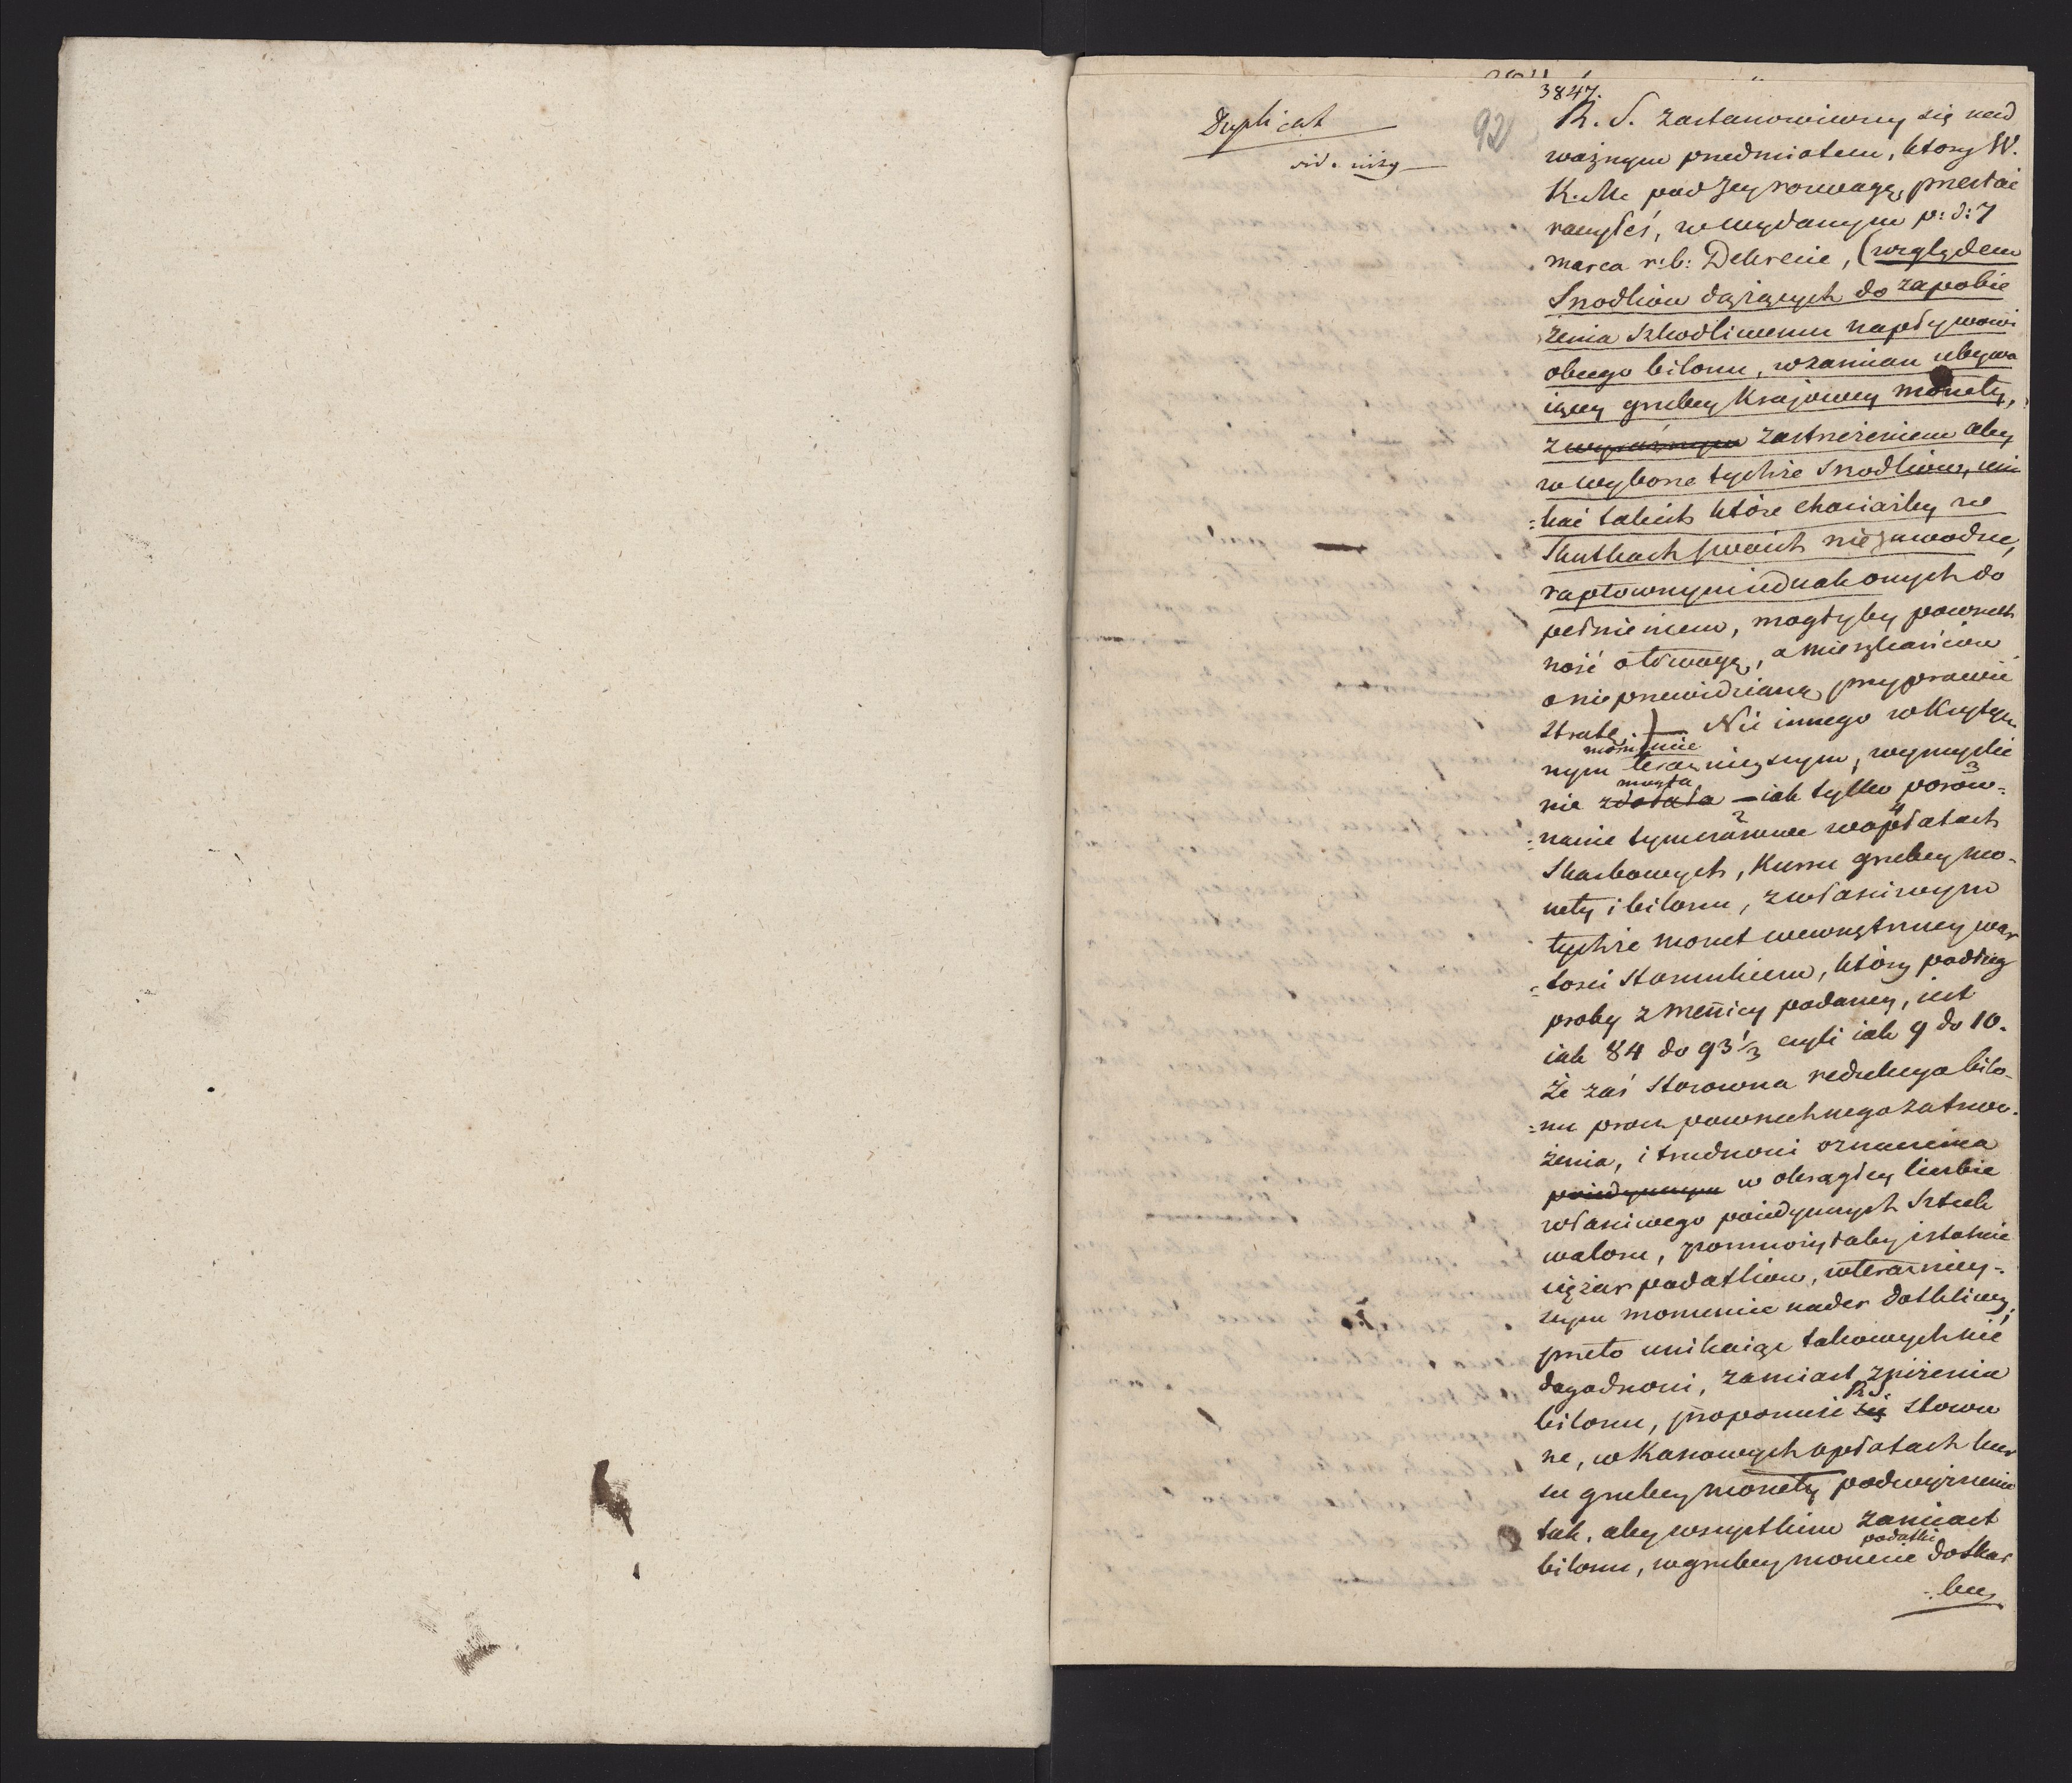 3847.
Duplicat
vid. niżey
92
R. S. zastanowiwszy się nad
ważnym przedmiotem, ktory W.
K. M. pod Jey rozwagę, przesłać
raczyłeś, w wydanym p: d: 7
marca r: b: Dekrecie, (względem
Srzodków dążących do zapobie
żenia szkodliwemu napływowi
obcego bilonu, w zamian ubywa
iącey grubey Krajowey monety,
z wyraźnym zastrzeżeniem aby
w wyborze tychże Srzodków, uni
=kać takich które chociażby w
Skutkach swoich niezawodne,
raptownym iednak onych do
pełnieniem, mogłyby powszech
ność o trwogę, a mieszkańców
o nieprzewidzianą przyprawić
Stratę.) — Nic innego w Krytycz
nym momencie teraznieyszym, wymyślić
nie zdołała mogła — iak tylko porów= 3
=nanie tymczasowe 2 w opłatach 4
Skarbowych, Kursu grubey mo-
nety i bilonu, z właściwym
tychże monet wewnętrzney war
=tości Stosunkiem, który podług
proby z mennicy podaney, iest
iak 84 do 93 1/3 czyli iak 9 do 10.
Że zaś Stosowna redukcya bilo-
=nu procz powszechnego zatrwo-
żenia, i trudności oznaczenia
poiedynczym w okrągłey liczbie
właściwego poiedynczych Sztuk
waloru, pomnożyłaby istotnie
ciężar podatków, w teraźniey=
szym momencie nader dotkliwy;
przeto unikaiąc takowych nie
dogodności, zamiast zniżenia
bilonu, proponuie się R. S. stosow
ne, w Kassowych opłatach kur
su grubey monety podwyższenie
tak, aby wszystkim zamiast
bilonu, w grubey monecie podatki do Skar
=bu